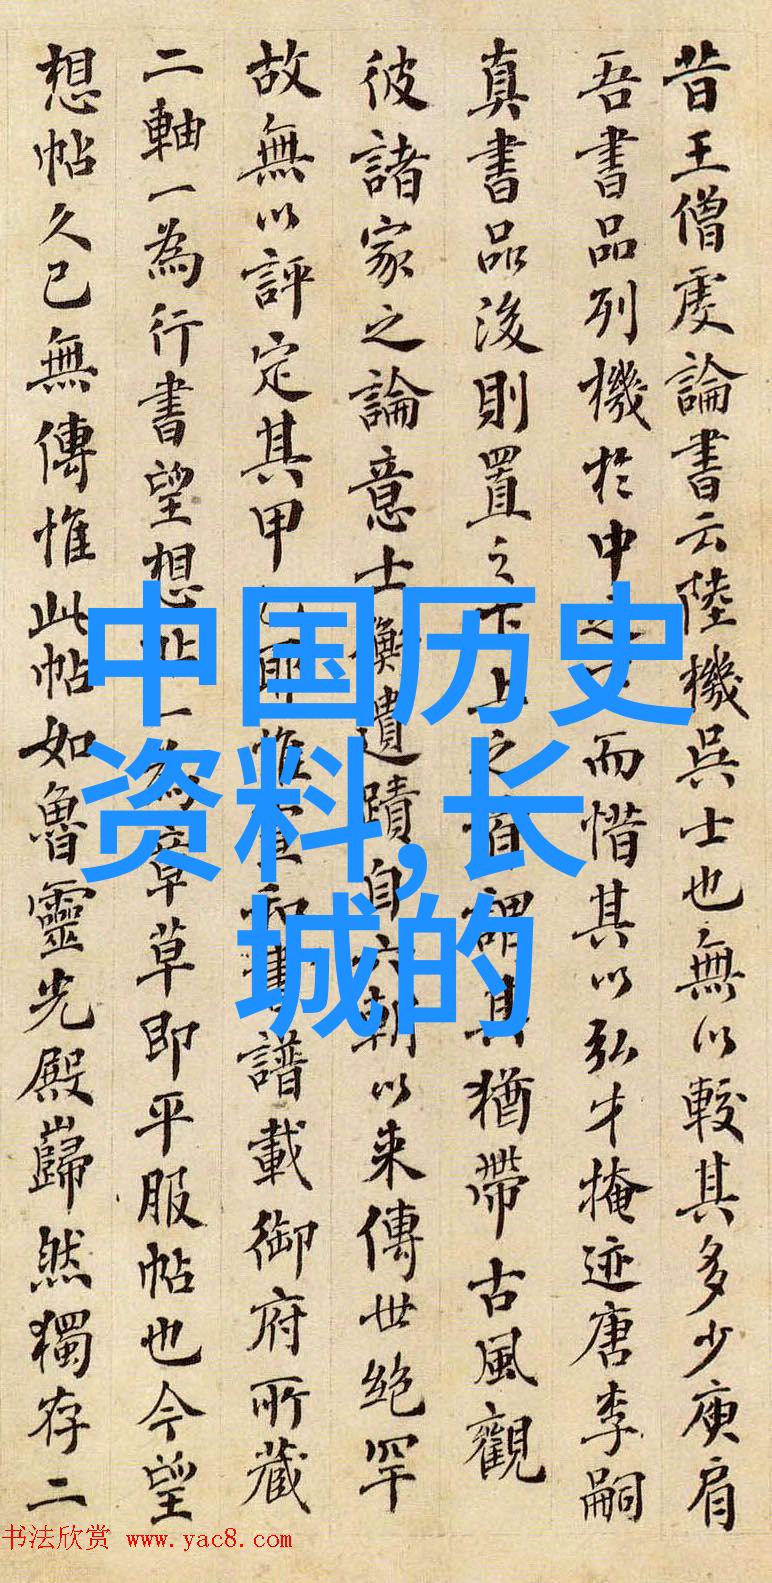 昔王僧虔論書云陸機吳士也無以較其多少庾肩
吾書品列機於中之而惜其以弘才掩迹唐李嗣
真書品後則置之下上之首謂其猶帶古風觀
彼諸家之論意士衡遺蹟自六朝以来傳世絶罕
故無以評定其甲乙耶惟宣和書譜載御府所藏
二軸一為行書望想帖一為章草即平服帖也今望
想帖久已無傳惟此帖如魯靈光殿巋然獨存二
中国历史
资料,长
城的
书法欣赏 www.yac8.com